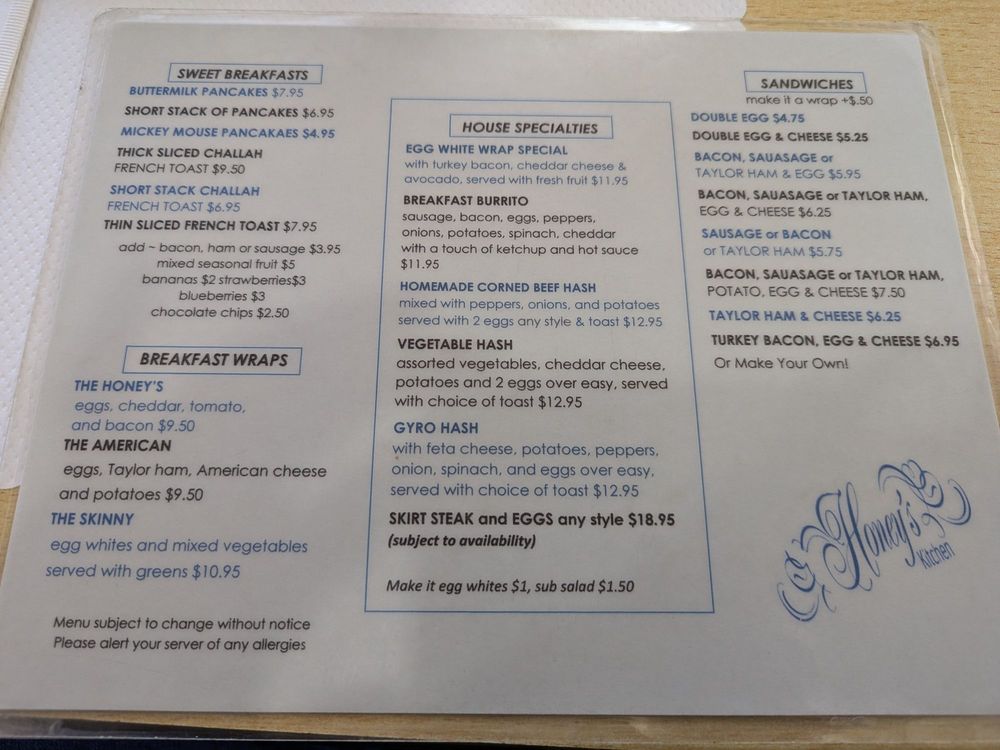 SWEET BREAKFASTS
BUTTERMILK PANCAKES $7.95
SHORT STACK OF PANCAKES $6.95
MICKEY MOUSE PANCAKAES $4.95
THICK SLICED CHALLAH
FRENCH TOAST $9.50
SHORT STACK CHALLAH
FRENCH TOAST $6.95
THIN SLICED FRENCH TOAST $7.95
add ~ bacon, ham or sausage $3.95
mixed seasonal fruit $5
bananas $2 strawberries$3
blueberries $3
chocolate chips $2.50
BREAKFAST WRAPS
THE HONEY'S
eggs, cheddar, tomato,
and bacon $9.50
THE AMERICAN
eggs, Taylor ham, American cheese
and potatoes $9.50
THE SKINNY
egg whites and mixed vegetables
served with greens $10.95
Menu subject to change without notice
Please alert your server of any allergies
HOUSE SPECIALTIES
EGG WHITE WRAP SPECIAL
with turkey bacon, cheddar cheese &
avocado, served with fresh fruit $11.95
BREAKFAST BURRITO
sausage, bacon, eggs, peppers,
onions, potatoes, spinach, cheddar
with a touch of ketchup and hot sauce
$11.95
HOMEMADE CORNED BEEF HASH
mixed with peppers, onions, and potatoes
served with 2 eggs any style & toast $12.95
VEGETABLE HASH
assorted vegetables, cheddar cheese,
potatoes and 2 eggs over easy, served
with choice of toast $12.95
GYRO HASH
with feta cheese, potatoes, peppers,
onion, spinach, and eggs over easy,
served with choice of toast $12.95
SKIRT STEAK and EGGS any style $18.95
(subject to availability)
Make it egg whites $1, sub salad $1.50
SANDWICHES
make it a wrap +$.50
DOUBLE EGG $4.75
DOUBLE EGG & CHEESE $5.25
BACON, SAUASAGE or
TAYLOR HAM & EGG $5.95
BACON, SAUASAGE or TAYLOR HAM,
EGG & CHEESE $6.25
SAUSAGE or BACON
or TAYLOR HAM $5.75
BACON, SAUASAGE or TAYLOR HAM,
POTATO, EGG & CHEESE $7.50
TAYLOR HAM & CHEESE $6.25
TURKEY BACON, EGG & CHEESE $6.95
Or Make Your Own!
Honey's
Kitchen